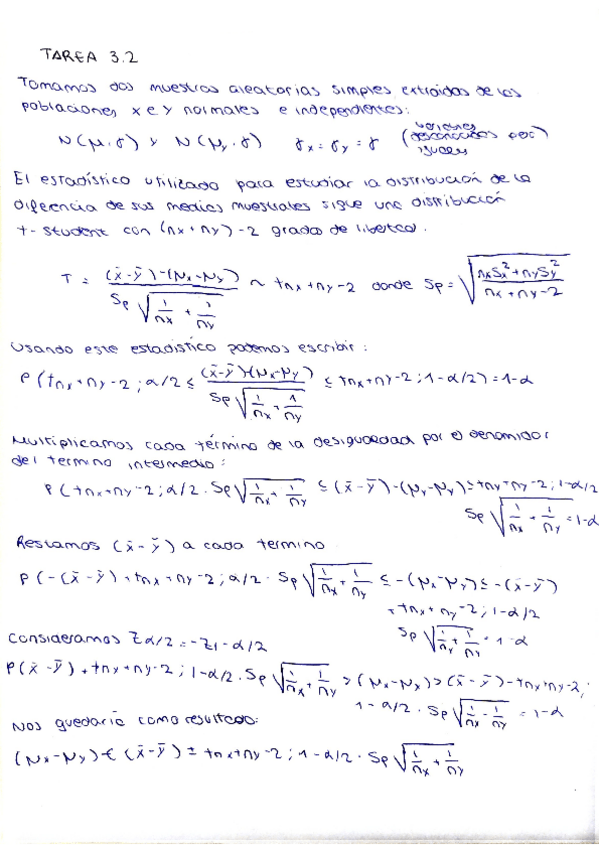 TAREA 3.2
Tomamos dos muestras aleatorias simples extraidas de las
poblaciones x e y normales e independientes:
N(μ,σ) y N(μy,σ) σx = σy = σ (varianzas desconocidas pero iguales)
El estadístico utilizado para estudiar la distribución de la
diferencia de sus medias muestrales sigue una distribución
t-student con (nx+ny)-2 grados de libertad.
T = ((x̄-ȳ)-(μx-μy)) / (Sp √(1/nx + 1/ny)) ~ tnx+ny-2 donde Sp = √((nxSx²+nySy²)/(nx+ny-2))
Usando este estadístico podemos escribir:
P(tnx+ny-2;α/2 ≤ ((x̄-ȳ)-(μx-μy)) / (Sp √(1/nx + 1/ny)) ≤ tnx+ny-2;1-α/2) = 1-α
Multiplicamos cada término de la desigualdad por el denomidor
del termino intermedio:
P(tnx+ny-2;α/2 · Sp √(1/nx + 1/ny) ≤ (x̄-ȳ)-(μx-μy) ≤ tnx+ny-2;1-α/2
Sp √(1/nx + 1/ny) = 1-α
Restamos (x̄-ȳ) a cada termino
P(-(x̄-ȳ)+tnx+ny-2;α/2 · Sp √(1/nx + 1/ny) ≤ -(μx-μy) ≤ -(x̄-ȳ)
+tnx+ny-2;1-α/2
Sp √(1/nx + 1/ny) = 1-α
Consideramos Zα/2 = -Z1-α/2
P(x̄-ȳ)+tnx+ny-2;1-α/2 · Sp √(1/nx + 1/ny) > (μx-μx) > (x̄-ȳ)-tnx+ny-2;
1-α/2 · Sp √(1/nx - 1/ny) = 1-α
Nos quedaría como resultado:
(μx-μy) € (x̄-ȳ) ± tnx+ny-2;1-α/2 · Sp √(1/nx + 1/ny)